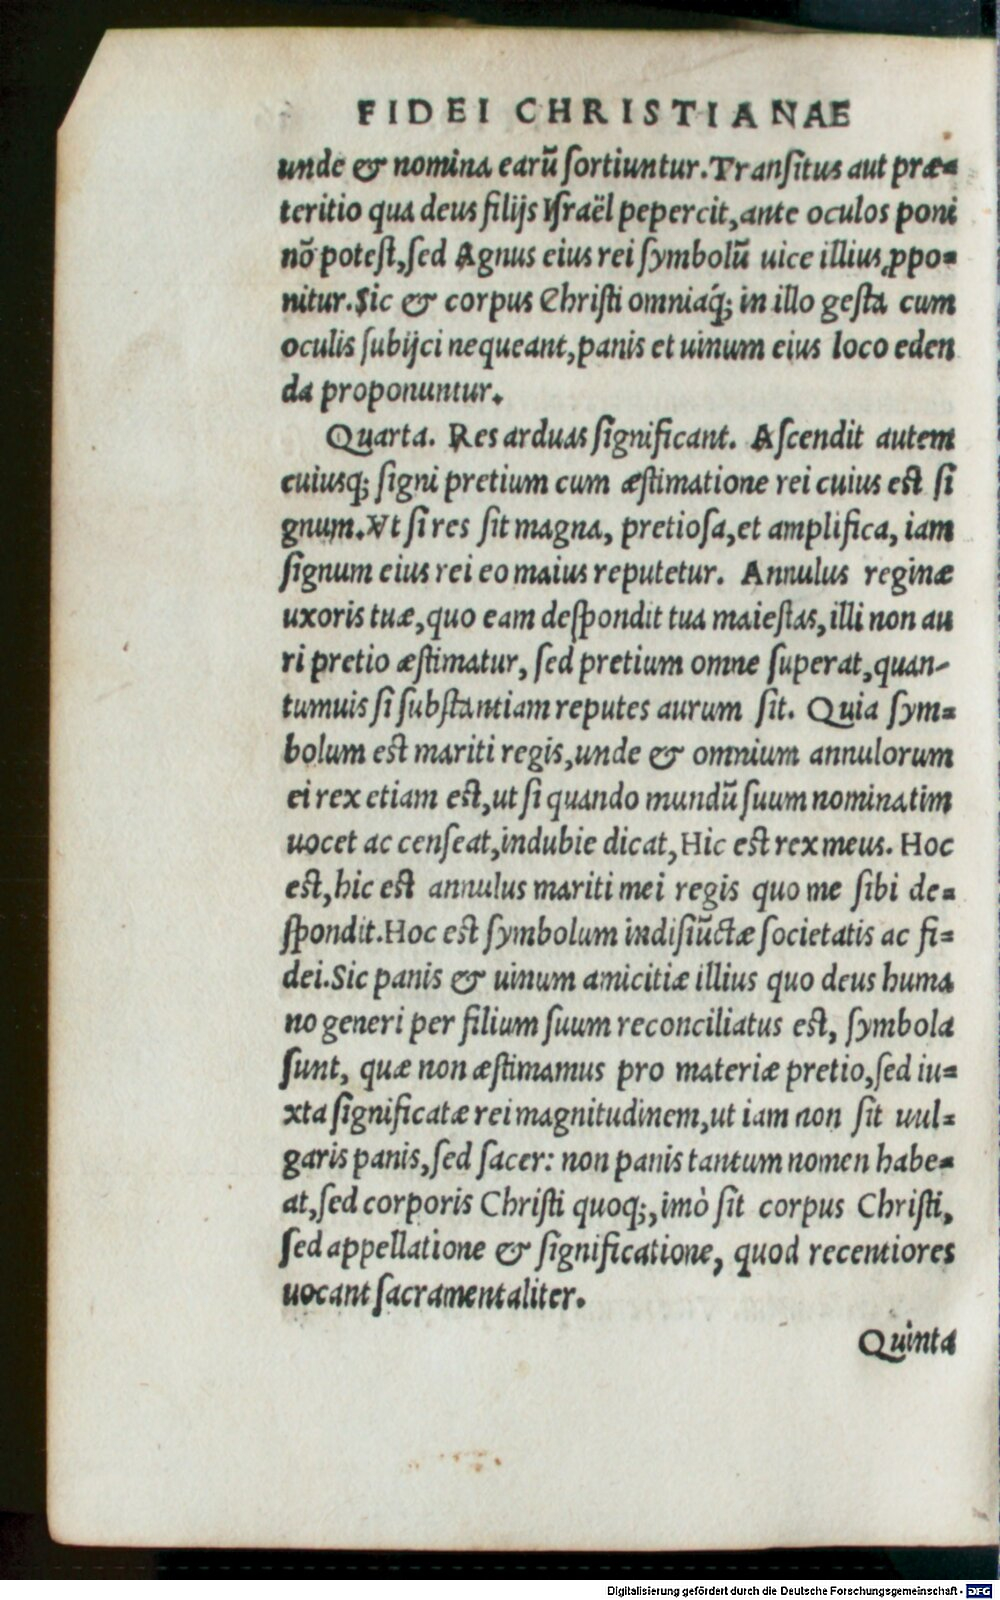 FIDEI CHRISTIANAE
unde & nomina earũ ſortiuntur. Tranſitus aut præ=
teritio qua deus filijs Iſraël pepercit, ante oculos poni
nõ poteſt, ſed Agnus eius rei ſymbolũ uice illius ꝓpo=
nitur. Sic & corpus Chriſti omniaq́; in illo geſta cum
oculis ſubijci nequeant, panis et uinum eius loco eden
da proponuntur.
Quarta. Res arduas ſignificant. Aſcendit autem
cuiusq; ſigni pretium cum æſtimatione rei cuius eſt ſi
gnum. Vt ſi res ſit magna, pretioſa, et amplifica, iam
ſignum eius rei eo maius reputetur. Annulus reginæ
uxoris tuæ, quo eam deſpondit tua maieſtas, illi non au
ri pretio æſtimatur, ſed pretium omne ſuperat, quan-
tumuis ſi ſubſtantiam reputes aurum ſit. Quia ſym=
bolum eſt mariti regis, unde & omnium annulorum
ei rex etiam eſt, ut ſi quando mundũ ſuum nominatim
uocet ac cenſeat, indubie dicat, Hic eſt rex meus. Hoc
eſt, hic eſt annulus mariti mei regis quo me ſibi de=
ſpondit. Hoc eſt ſymbolum indiſiũctæ ſocietatis ac fi=
dei. Sic panis & uinum amicitiæ illius quo deus huma
no generi per filium ſuum reconciliatus eſt, ſymbola
ſunt, quæ non æſtimamus pro materiæ pretio, ſed iu=
xta ſignificatæ rei magnitudinem, ut iam non ſit uul=
garis panis, ſed ſacer: non panis tantum nomen habe=
at, ſed corporis Chriſti quoq;, imò ſit corpus Chriſti,
ſed appellatione & ſignificatione, quod recentiores
uocant ſacramentaliter.
Quinta
Digitalisierung gefördert durch die Deutsche Forschungsgemeinschaft - DFG